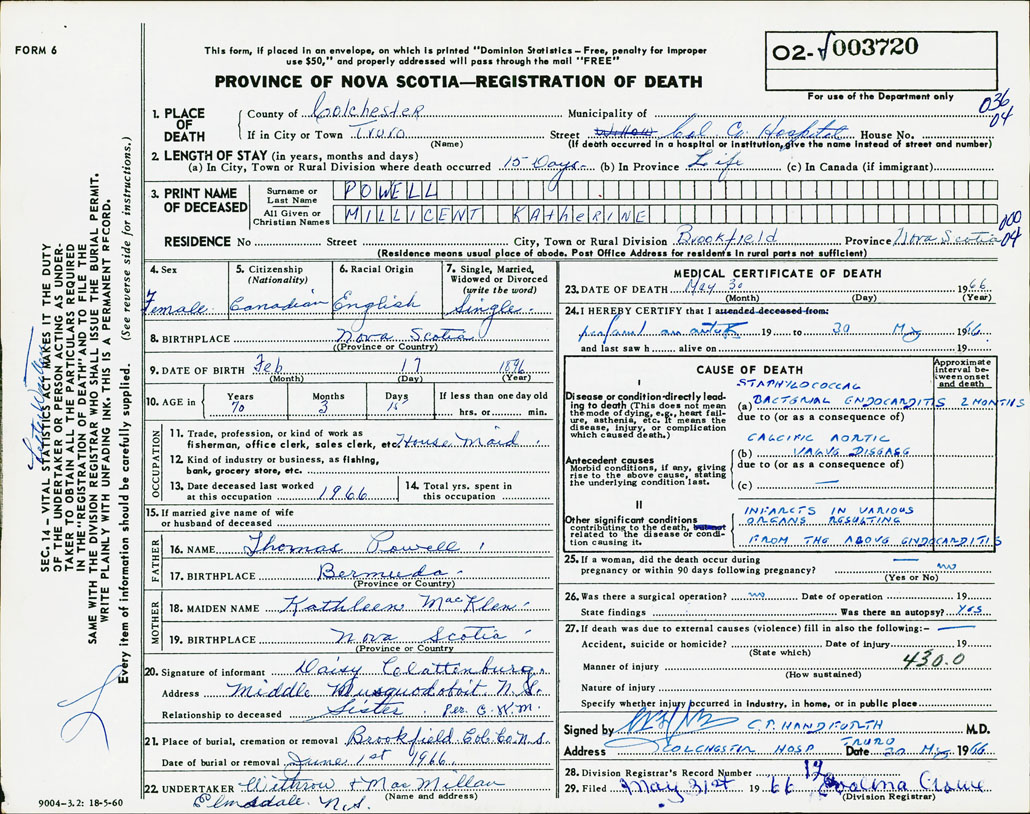 FORM 6
This form, if placed in an envelope, on which is printed "Dominion Statistics – Free, penalty for improper
use $50," and properly addressed will pass through the mail "FREE"
PROVINCE OF NOVA SCOTIA—REGISTRATION OF DEATH
02- 003720
For use of the Department only
036
04
1. PLACE OF DEATH
County of Colchester Municipality of
If in City or Town Truro Street Willow Col. Co. Hospital House No.
(Name) (If death occurred in a hospital or institution, give the name instead of street and number)
2. LENGTH OF STAY (in years, months and days)
(a) In City, Town or Rural Division where death occurred 15 Days. (b) In Province Life (c) In Canada (if immigrant)
3. PRINT NAME OF DECEASED
Surname or Last Name POWELL
All Given or Christian Names MILLICENT KAthERINE
000
04
RESIDENCE No Street City, Town or Rural Division Brookfield Province Nova Scotia
(Residence means usual place of abode. Post Office Address for residents in rural parts not sufficient)
4. Sex Female
5. Citizenship (Nationality) Canadian
6. Racial Origin English
7. Single, Married, Widowed or Divorced (write the word) Single
8. BIRTHPLACE Nova Scotia
(Province or Country)
9. DATE OF BIRTH Feb 17 1896
(Month) (Day) (Year)
10. AGE in Years Months Days If less than one day old
70 3 hrs. or min.
OCCUPATION
11. Trade, profession, or kind of work as
fisherman, office clerk, sales clerk, etc. House Maid
12. Kind of industry or business, as fishing,
bank, grocery store, etc.
13. Date deceased last worked
at this occupation 1966
14. Total yrs. spent in
this occupation
15. If married give name of wife
or husband of deceased
FATHER
16. NAME Thomas Powell
17. BIRTHPLACE Bermuda
(Province or Country)
MOTHER
18. MAIDEN NAME Kathleen MacKlen
19. BIRTHPLACE Nova Scotia
(Province or Country)
20. Signature of informant Daisy Clattenburg
Address Middle Musquodoboit N.S.
Relationship to deceased Sister. Per. C.W.M.
21. Place of burial, cremation or removal Brookfield Col. Co. N.S.
Date of burial or removal June 1st 1966
22. UNDERTAKER Withrow & MacMillan
(Name and address)
Elmsdale. N.S.
9004-3.2: 18-5-60
MEDICAL CERTIFICATE OF DEATH
23. DATE OF DEATH May 30 1966
(Month) (Day) (Year)
24. I HEREBY CERTIFY that I attended deceased from:
19 to 30 May 1966
and last saw h alive on 19
CAUSE OF DEATH
Approximate interval between onset and death
I
Disease or condition directly leading to death (This does not mean the mode of dying, e.g., heart failure, asthenia, etc. It means the disease, injury, or complication which caused death.)
STAPHYLOCOCCAL
(a) BACTERIAL ENDOCARDITIS 2 MONTHS
due to (or as a consequence of)
CALCIFIC AORTIC
Antecedent causes
Morbid conditions, if any, giving rise to the above cause, stating the underlying condition last.
(b) VALVE DISEASE
due to (or as a consequence of)
(c) —
II
Other significant conditions
contributing to the death, but not
related to the disease or condition causing it.
INFARCTS IN VARIOUS
ORGANS RESULTING
FROM THE ABOVE ENDOCARDITIS
25. If a woman, did the death occur during —
pregnancy or within 90 days following pregnancy? no
(Yes or No)
26. Was there a surgical operation? no Date of operation 19
State findings Was there an autopsy? Yes
27. If death was due to external causes (violence) fill in also the following:- —
Accident, suicide or homicide? Date of injury 19
(State which)
430.0
Manner of injury
(How sustained)
Nature of injury
Specify whether injury occurred in industry, in home, or in public place
Signed by C.P. HANDFORTH M.D.
Address COLCHESTER HOSP TRURO Date 30 May 1966
28. Division Registrar's Record Number 12
29. Filed May 31st 1966
(Division Registrar)
SEC. 14 – VITAL STATISTICS ACT MAKES IT THE DUTY
OF THE UNDERTAKER OR PERSON ACTING AS UNDER-
TAKER TO OBTAIN ALL THE PARTICULARS REQUIRED
IN THE "REGISTRATION OF DEATH" AND TO FILE THE
SAME WITH THE DIVISION REGISTRAR WHO SHALL ISSUE THE BURIAL PERMIT.
WRITE PLAINLY WITH UNFADING INK. THIS IS A PERMANENT RECORD.
Every item of information should be carefully supplied. (See reverse side for instructions.)